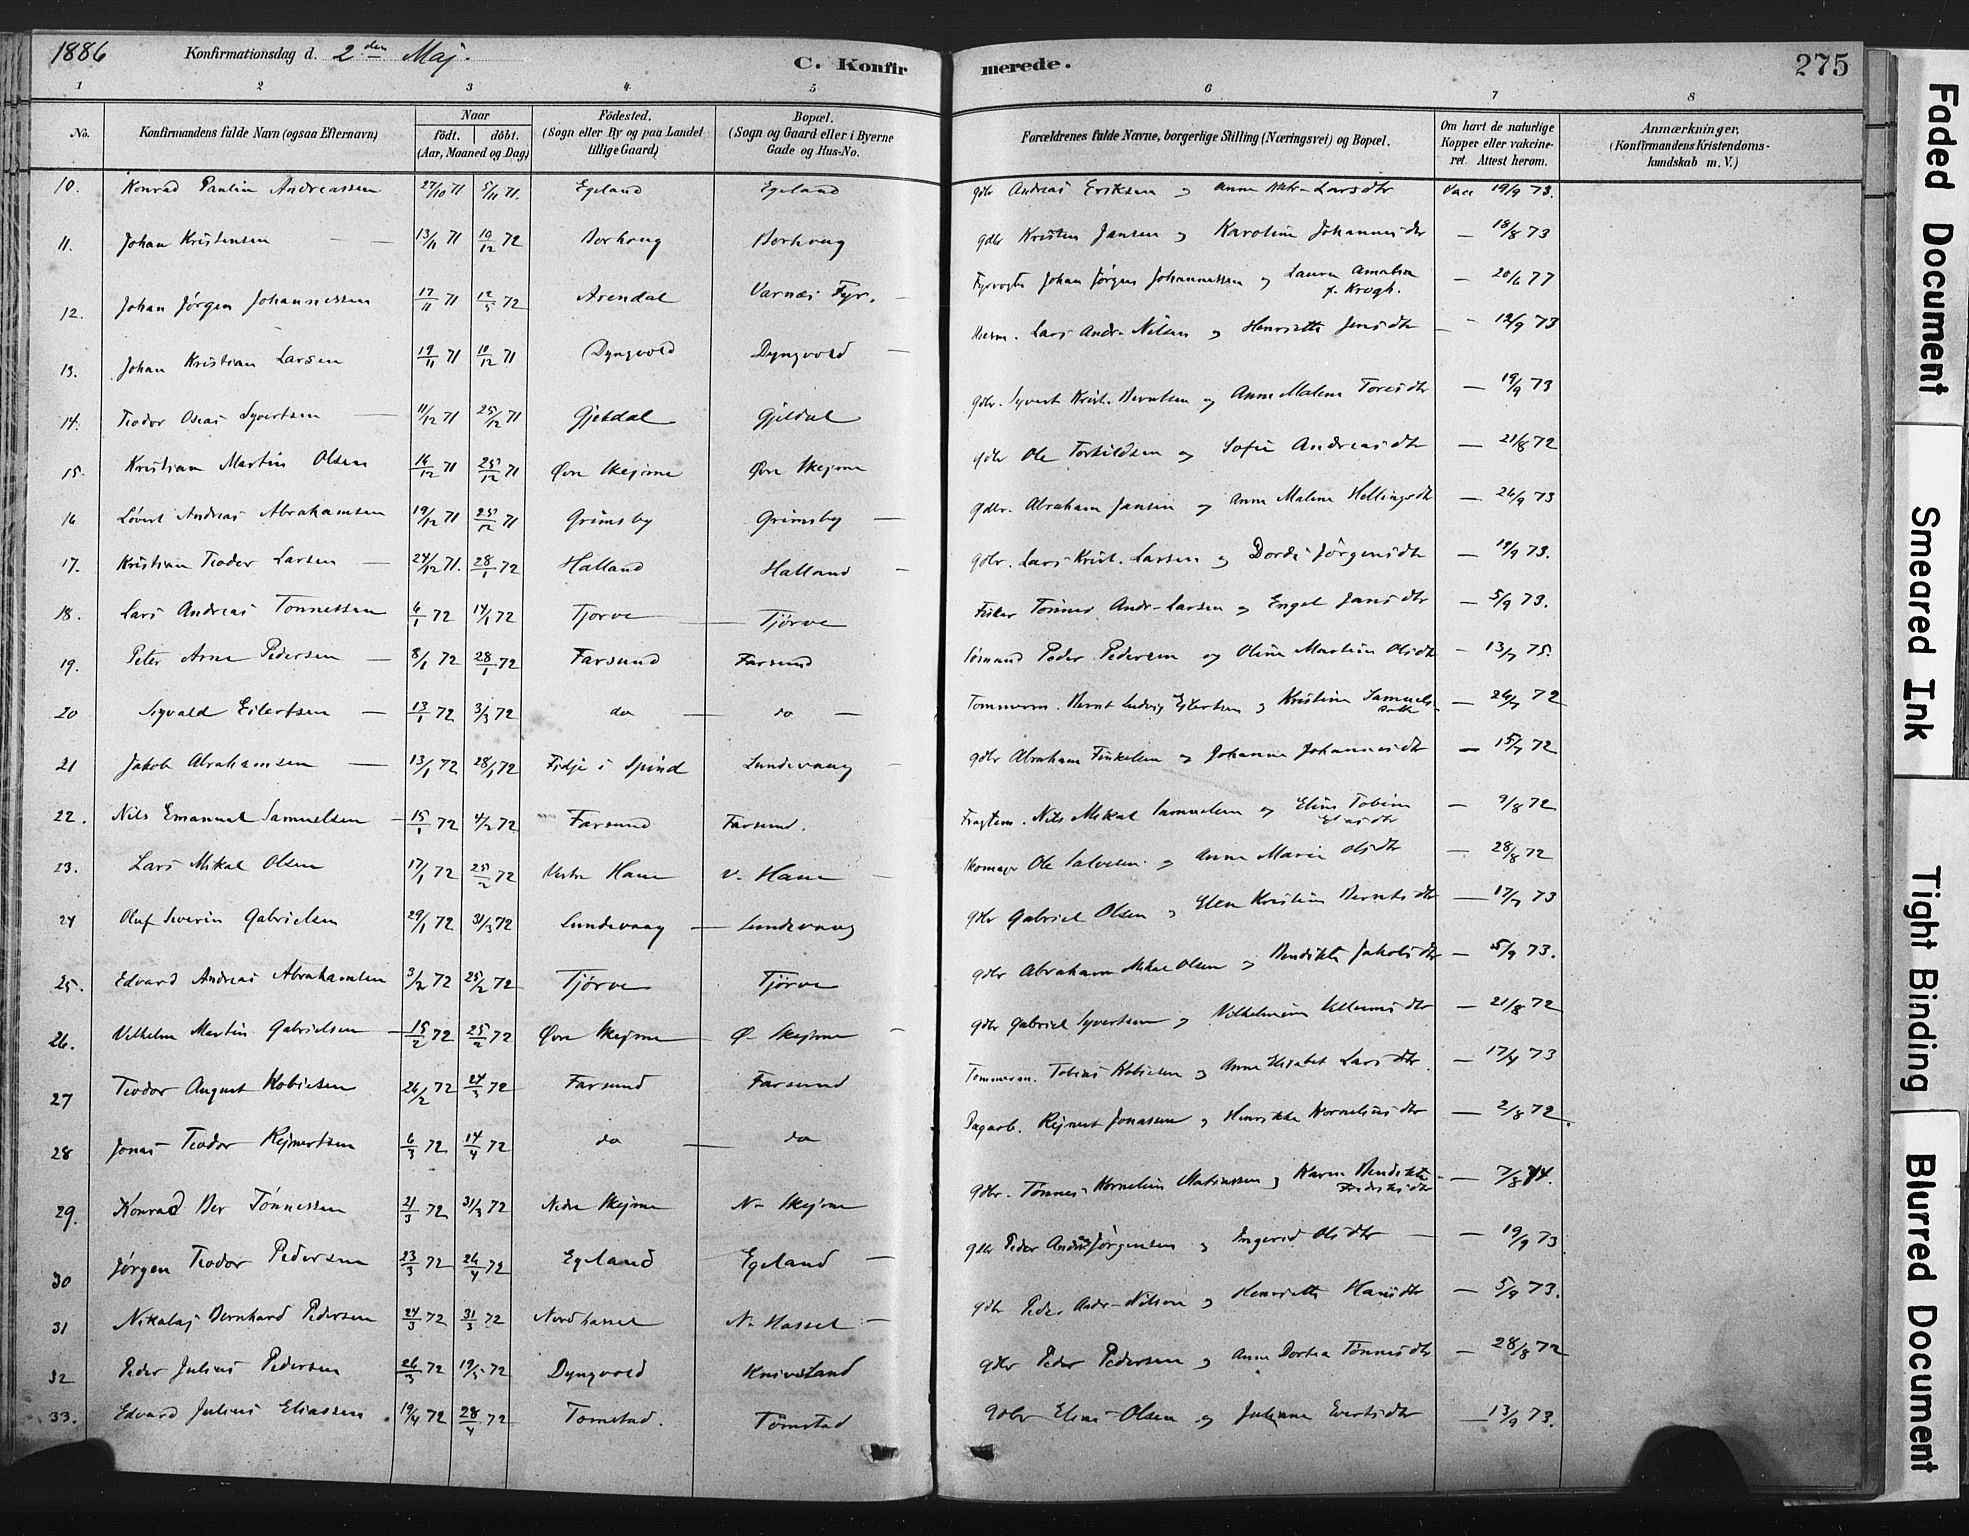 1886 Konfirmationsdag d. 2den Maj. C. Konfirmerede. 275
1 2 3 4 5 6 7 8
No. Konfirmandens fulde Navn (ogsaa Efternavn) Naar født. døbt. (Aar, Maaned og Dag) Fødested. (Sogn eller By og paa Landet tillige Gaard) Bopæl. (Sogn og Gaard eller i Byerne Gade og Hus-No. Forældrenes fulde Navne, borgerlige Stilling (Næringsvei) og Bopæl. Om havt de naturlige Kopper eller vakcineret. Attest herom. Anmærkninger, (Konfirmandens Kristendomskundskab m. V.)
10. Konrad Paulin Andreassen 27/10 71 5/11 71. Egeland Egeland gdbr Andreas Eriksen og Anne Larsdtr Vacc 19/9 73.
11. Johan Kristensen — 13/11 71 19/12 72 Borhoug Borhoug gdbr Kristen Jansen og Karoline Johannesdtr — 18/8 73
12. Johan Jørgen Johannessen 17/11 71 12/5 72 Arendal Varnæs Fyr. — Fyrvogter Johan Jørgen Johannessen og Laura Amalia f. Krogh. — 20/6 77
13. Johan Kristian Larsen 19/11 71 10/12 71 Dyngvold Dyngvold — Lars Andr. Nilsen og Henriette Jensdtr — 12/9 73
14. Teodor Oseas Syvertsen — 11/12 71 25/12 71 Gjeldal Gjeldal gdbr. Syvert Krist. Berntsen og Anne Malene Toresdtr — 19/9 73
15. Kristian Martin Olsen 16/12 71 25/12 71 Øvre Skejme Øvre Skejme gdbr Ole Torkildsen og Sofie Andreasdtr — 21/8 72
16 Løvert Andreas Abrahamsen 19/12 71 25/12 71 Grimsby Grimsby — gdbr. Abraham Jansen og Anne Malene Hellingsdtr — 26/9 73
17. Kristian Teodor Larsen — 24/12 71. 28/1 72 Halland Halland — gdbr. Lars Krist. Larsen og Dorde Jørgensdtr — 19/9 73.
18. Lars Andreas Tønnessen 6/1 72 14/1 72 Tjorve — Tjörve Fisker Tønnes Andr. Larsen og Engel Jansdtr — 5/9 73.
19. Peter Arne Pedersen — 8/1 72 28/1 72 Farsund Farsund Sømand Peder Pedersen og Oline Martine Olsdtr — 13/7 75.
20 Sigvald Eilertsen — 13/1 72 3/3 72 do — do — Tømmerm. Bernt Ludvig Eilertsen og Kristine Samuelsdatter — 26/7 72
21 Jakob Abrahamsen — 13/1 72 28/1 72 Fidje i Spind Lundevaag — gdbr Abraham Finkelsen og Johanne Johannesdtr — 15/7 72
22. Nils Emanuel Samuelsen — 15/1 72 4/2 72 Farsund Farsund. Fragtem. Nils Mikal Samuelsen og Eline Tobine Eliasdtr — 9/8 72
23. Lars Mikal Olsen 17/1 72 25/2 72 Vestre Haue V. Haue — Skomager Ole Salvesen og Anne Marie Olsdtr — 28/8 72
24 Oluf Severin Gabrielsen 29/1 72 31/3 72 Lundevaag — Lundevaag gdbr Gabriel Olsen og Elen Kristine Berntsdtr — 17/7 73
25. Edvard Andreas Abrahamsen 3/2 72 25/2 72 Tjørve Tjörve gdbr Abraham Mikal Olsen og Bendikte Jakobsdtr — 5/9 73.
26. Vilhelm Martin Gabrielsen — 15/2 72 25/2 72 Øvre Skejme Ø. Skejme — gdbr Gabriel Syvertsen og Vilhelmine Villumsdtr — 21/8 72
27 Teodor August Kobielsen 26/2 72 24/3 72 Farsund Farsund Tømmerm. Tobias Kobielsen og Anne Elisabet Larsdtr — 17/4 73
28 Jonas Teodor Rejnertsen 6/3 72 14/4 72 do — do Dagarb. Rejnert Jonassen og Henrikke Kornelius dtr — 2/8 72.
29. Konrad Ber Tønnessen 21/3 72 31/3 72 Nedre Skejme N. Skejme gdbr. Tønnes Kornelius Matiassen og Karen Bendikte Fredriksdtr — 7/8 74.
30 Jørgen Teodor Pedersen 23/3 72 26/4 72 Egeland Egeland — gdbr Peder Andreas Jørgensen og Ingerid Olsdtr — 19/9 73
31 Nikolaj Bernhard Pedersen 24/3 72 31/3 72 Nordhassel N. Hassel — gdbr Peder Andr. Nilsen og Henriette Hansdtr — 5/9 73.
32 Peder Julius Pedersen 26/3 72 19/5 72 Dyngvold Knivsland gdbr Peder Pedersen og Anne Dortea Tønnesdtr — 28/8 72
33. Edvard Julius Eliassen 19/4 72 28/4 72 Tomstad. Tömstad Gdbr Elias Olsen og Juliane Evertsdtr — 13/9 73.
Faded Document
Smeared Ink
Tight Binding
Blurred Document